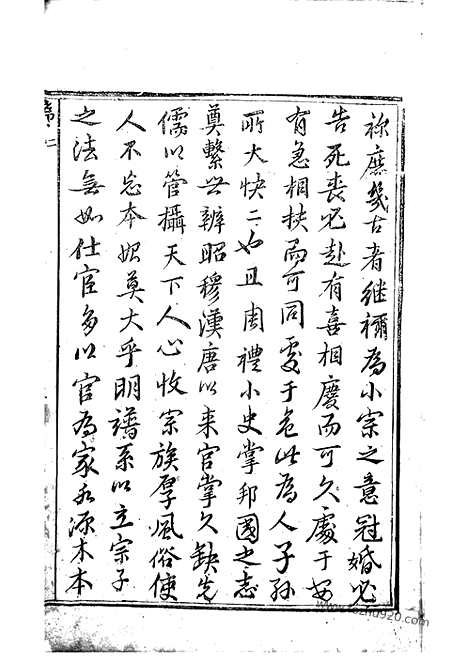 祢庶幾古者继禰為小宗之意冠婚必
告死喪必赴有喜相慶而可久處于安
有急相扶而可同處于危此為人子孫
所大快二也且周禮小史掌邦國之志
奠繫世辨昭穆漢唐以来官掌久缺先
儒以管攝天下人心收宗族厚風俗使
人不忘本始莫大乎明譜系以立宗子
之法無如仕宦多以官為家水源木本